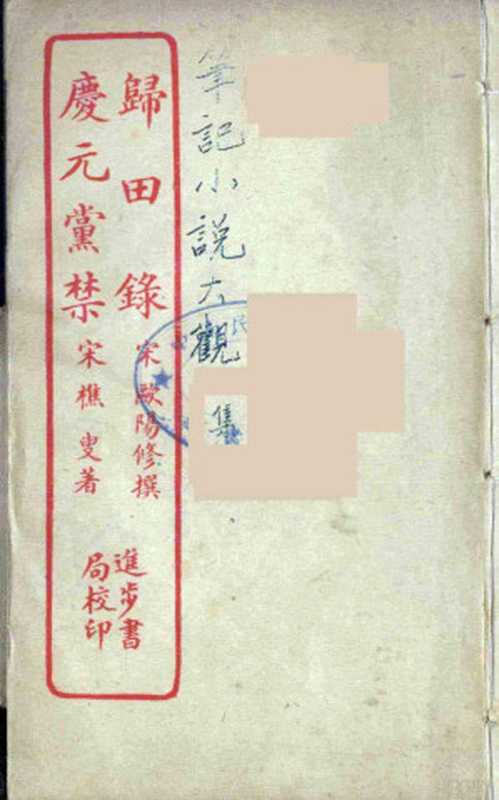 筆記小說大觀
集
歸田錄 宋歐陽修撰
慶元黨禁 宋樵叟著
進步書
局校印
民